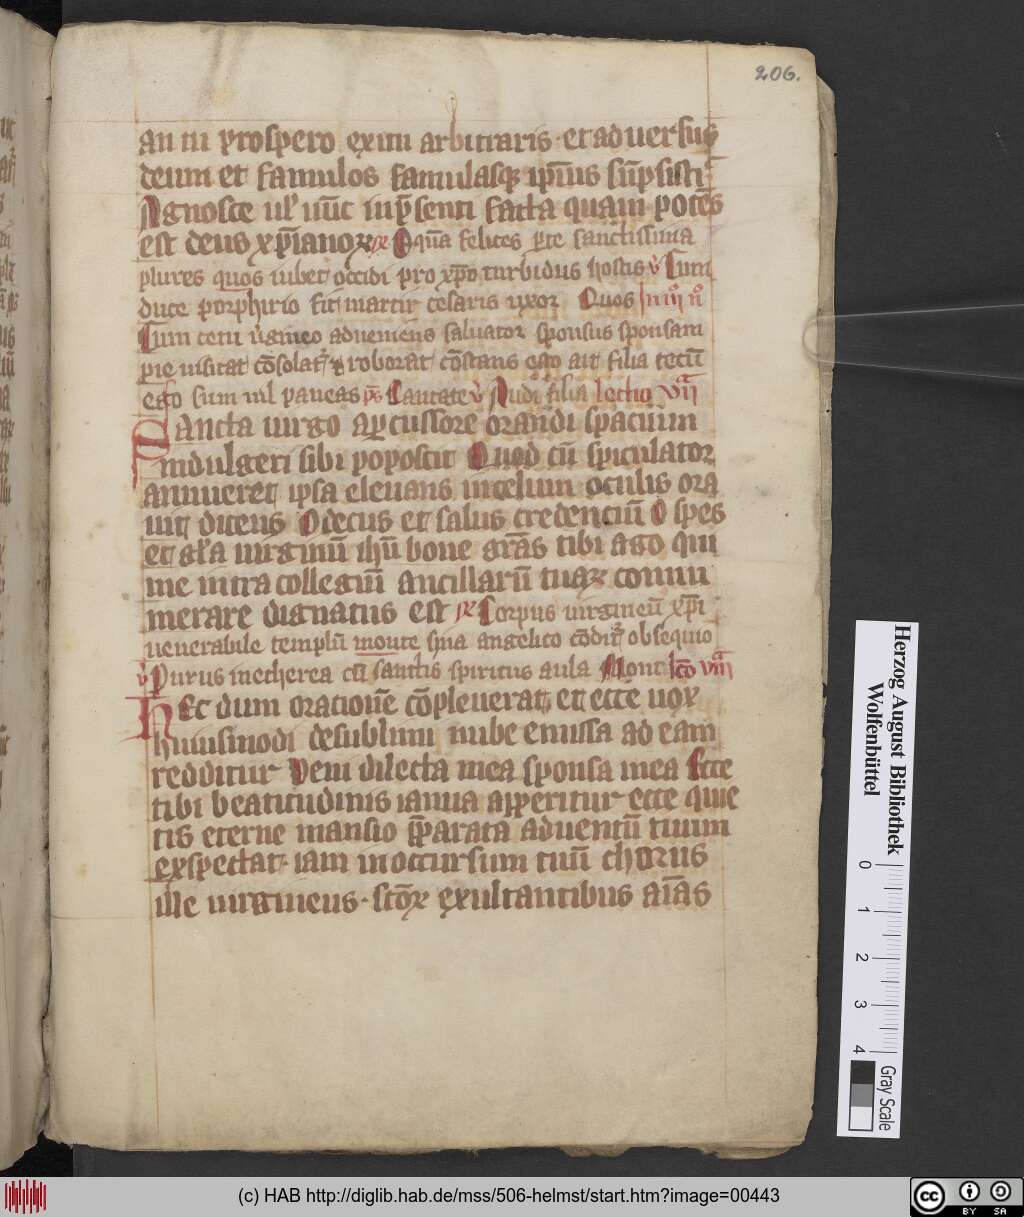 206.
an in prospero exitu arbitraris · et aduersus
deum et famulos famulasqꝫ ip̄ius
Agnosce ul' nūc in p̄senti facta quam potēs
est deus xp̄ianoꝝ ꝶ O quā felices ꝑ te sanctissima
plures quos iubet occidi pro xp̄o turbidus hostis v̓ Cum
duce porphirio fit martir cesaris uxor Quos In iiiº nº
Cum cetu v̓gineo adueniens saluator sponsus sponsam
pie uisitat cōsolat᷑ ⁊ roborat cōstans esto ait filia tecū
ego sum nil paueas pˢ Cantate v̓ Audi filia lectio viiª
Sancta uirgo a ꝑcussore orandi spacium
indulgeri sibi poposcit Quod cū spiculator
annueret ipsa eleuans in celum oculis ora
uit dicens O decus et salus credenciū O spes
et gl'a uirginū ihū bone gr̄as tibi ago qui
me intra collegiū ancillarū tuaꝝ connu
merare dignatus est ꝶ Corpus uirgineū xp̄i
uenerabile templū monte syna angelico cōdit᷑ obsequio
v̓ Purus inetherea cū sanctis spiritus aula Mont lc̄o viiiª
Hec dum orationē cōpleuerat et ecce uox
huiusmodi de sublimi nube emissa ad eam
redditur Veni dilecta mea sponsa mea Ecce
tibi beatitudinis ianua apperitur ecce quie
tis eterne mansio p̄parata aduentū tuum
exspectat · iam in occursum tuū chorus
ille uirgineus · sc̄oꝝ exultantibus aīās
Herzog August Bibliothek
Wolfenbüttel
0 1 2 3 4
Gray Scale
(c) HAB http://diglib.hab.de/mss/506-helmst/start.htm?image=00443
cc BY SA